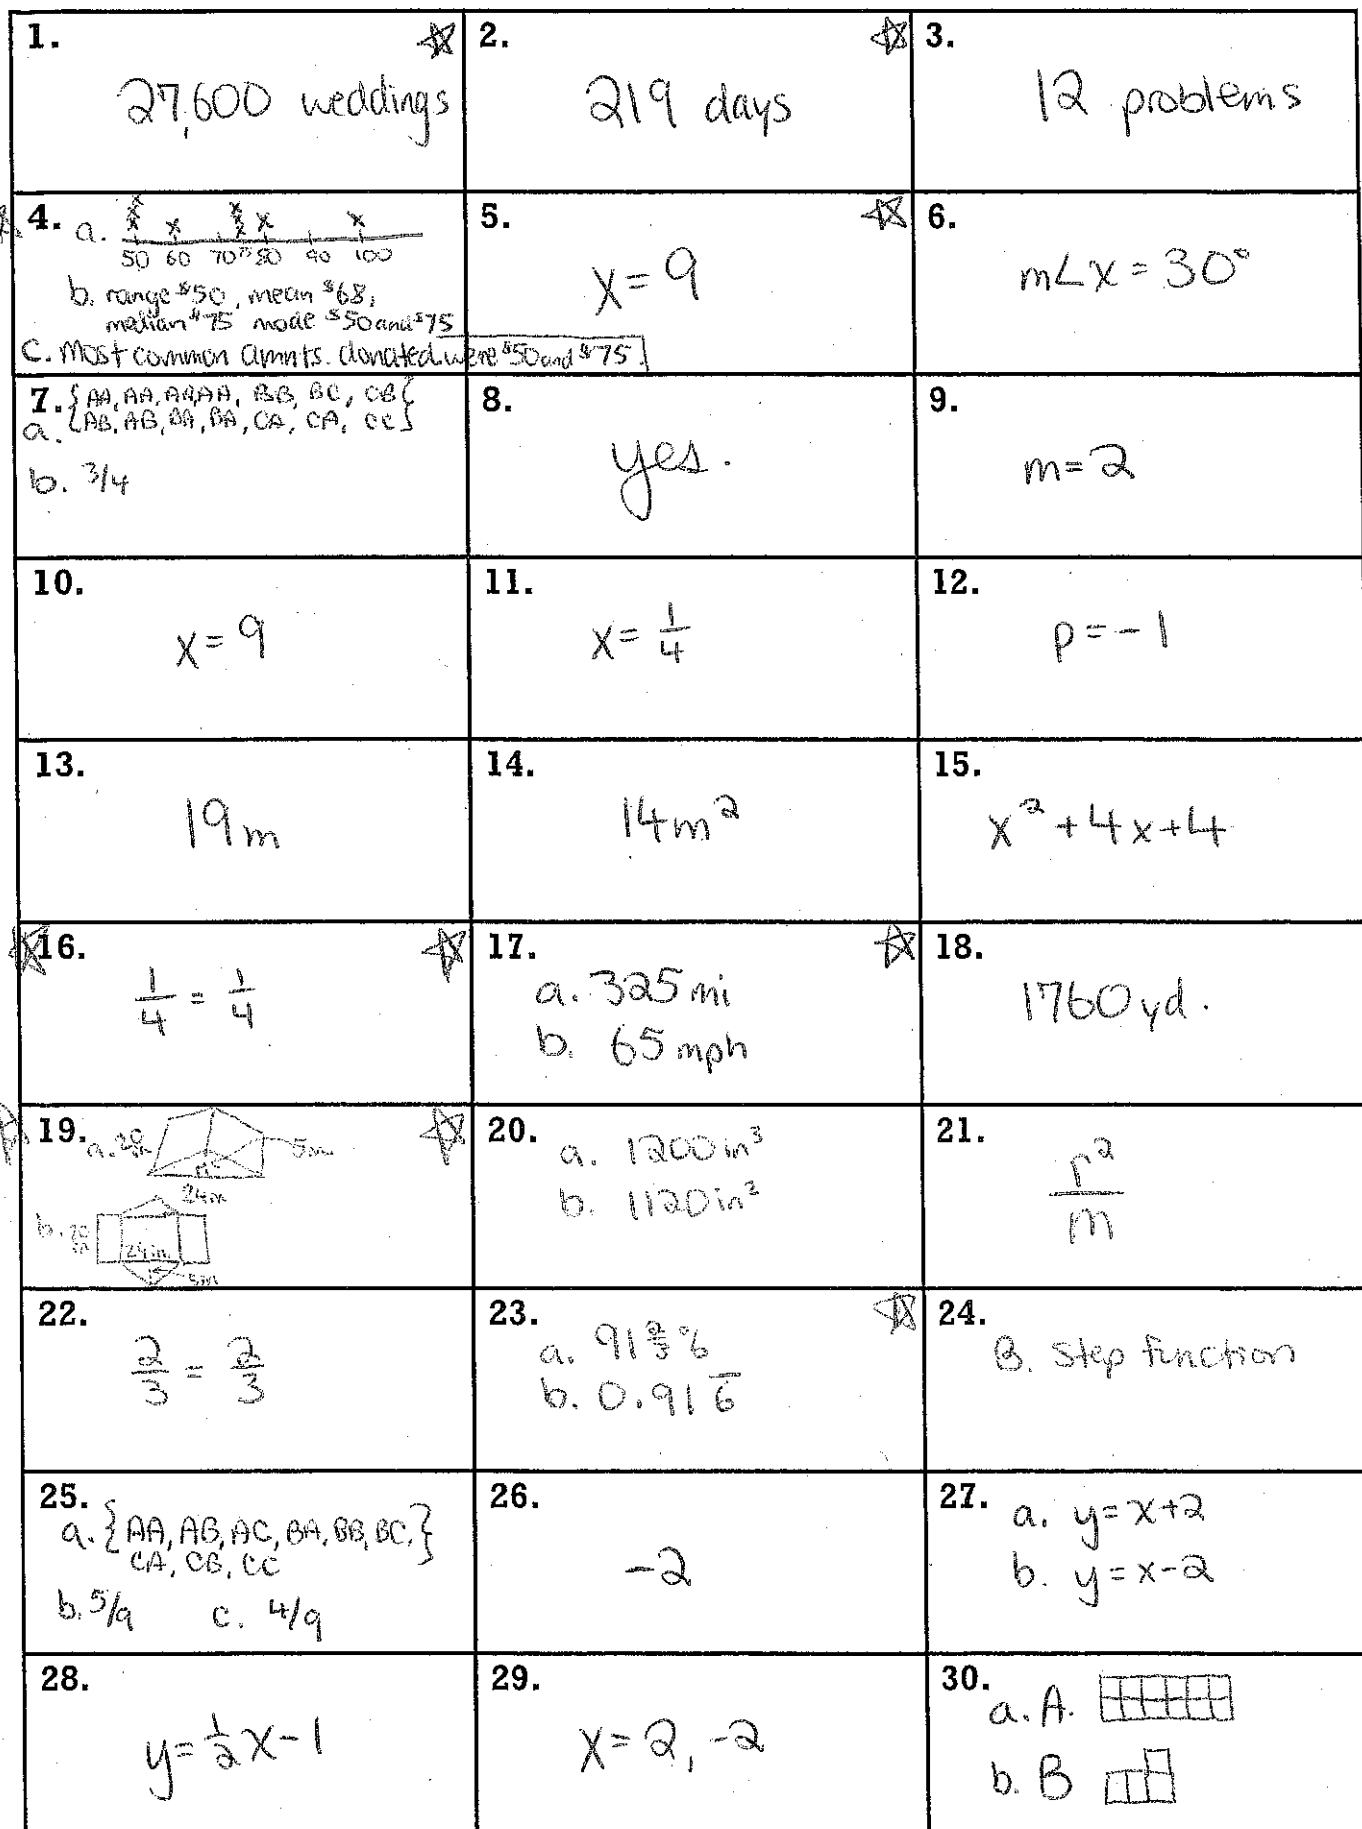 1.
27,600 weddings
2.
219 days
3.
12 problems
4. a.
50 60 70 75 80 90 100
b. range $50, mean $68,
median $75 mode $50 and $75
C. Most common amnts. donated were $50 and $75.
5.
x = 9
6.
m∠x = 30°
7. {AA, AA, AA, AA, BB, BC, CB
a. AB, AB, BA, BA, CA, CA, CC}
b. 3/4
8.
yes.
9.
m = 2
10.
x = 9
11.
x = 1/4
12.
p = -1
13.
19 m
14.
14 m²
15.
x² + 4x + 4
16.
1/4 = 1/4
17.
a. 325 mi
b. 65 mph
18.
1760 yd.
19. a. 20 in
5 in
24 in
b. 20 in
24 in.
5 in
20.
a. 1200 in³
b. 1120 in²
21.
r²/m
22.
2/3 = 2/3
23.
a. 91 2/3 %
b. 0.916̅
24.
B. Step function
25.
a. {AA, AB, AC, BA, BB, BC,}
CA, CB, CC
b. 5/9 c. 4/9
26.
-2
27. a. y = x+2
b. y = x-2
28.
y = 1/2 x - 1
29.
x = 2, -2
30.
a. A.
b. B